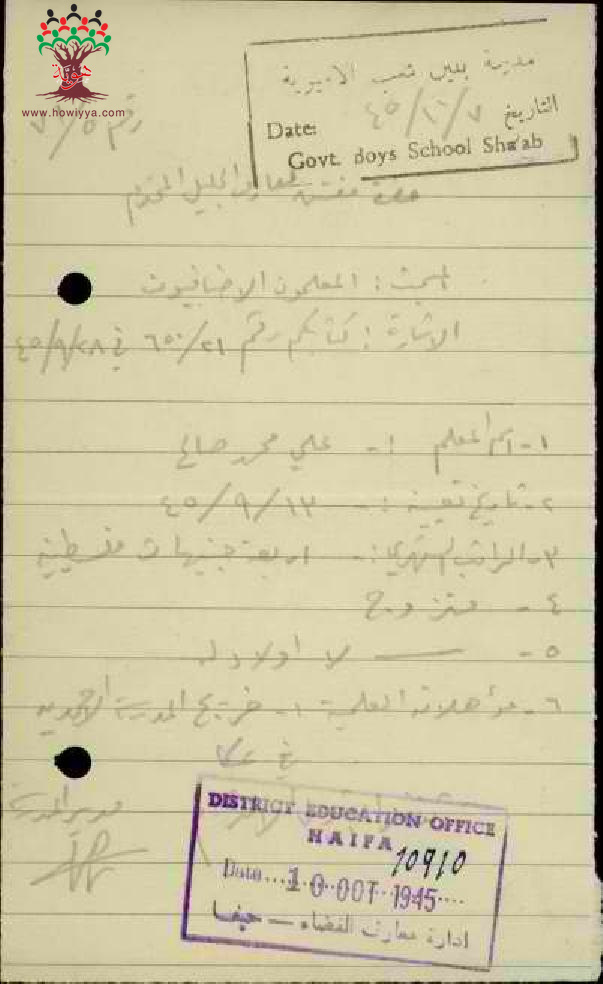 هوية
www.howiyya.com
مدرسة بنين شعب الاميرية
التاريخ ٧/١٠/٤٥
Date:
Govt. Boys School Sha'ab
رقم
حضرة مفتش معارف الجليل المحترم
المبحث : المعلمون الاضافيون
الاشارة : كتابكم رقم ٦٥٠/٢١ في ٢٨/٩/٤٥
١- اسم المعلم :- علي محمد صالح
٢- تاريخ تعيينه :- ١٣/٩/٤٥
٣- الراتب الشهري :- اربعة جنيهات فلسطينية
٤- متزوج
٥- لا اولاد له
٦- مؤهلاته العلمية :- خريج المدرسة الاحمدية
في عكا
مدير المدرسة
DISTRICT EDUCATION OFFICE
HAIFA
10910
Date... 10 OCT 1945....
ادارة معارف القضاء — حيفا